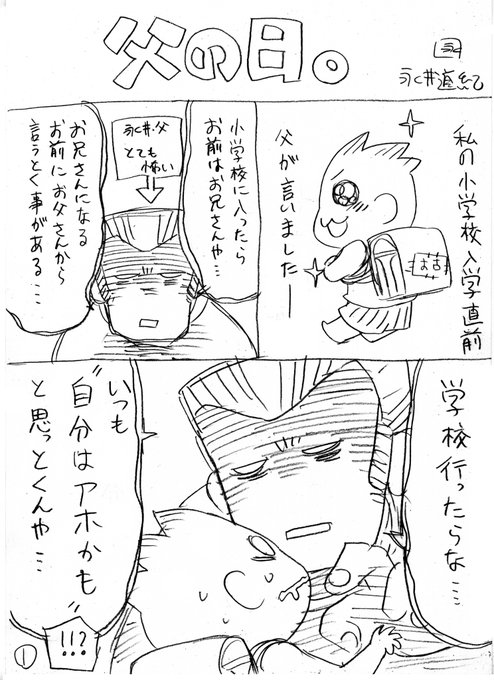 父の日。
永井道紀
私の小学校入学直前
父が言いました—
小学校に入ったら
お前はお兄さんや…
永井父
とても
怖い
お兄さんになる
お前にお父さんから
言うとく事がある…
学校行ったらな…
いつも
"自分はアホかも"
と思っとくんや…
!!?
1